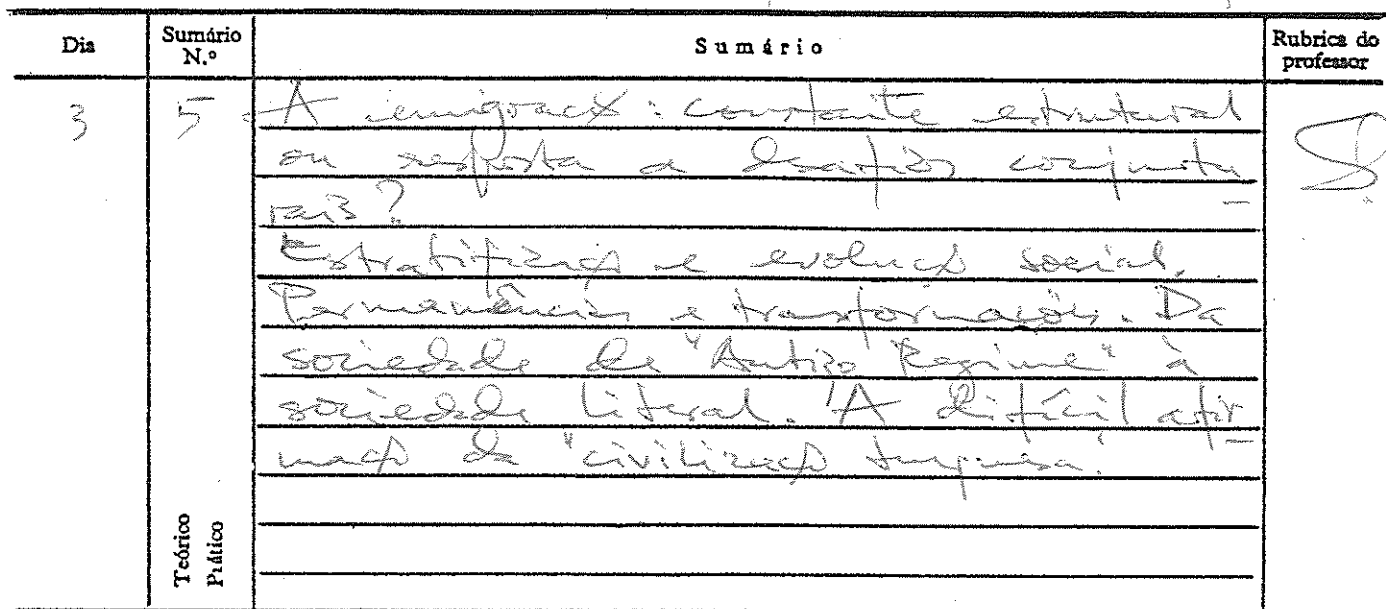 Dia Sumário N.º Sumário Rubrica do professor
3 5 - A emigração: constante estrutural
ou resposta a desafios conjuntu-
rais?
Estratificação e evolução social.
Permanências e transformações. Da
sociedade de "Antigo Regime" à
sociedade liberal. A difícil afir-
mação da "civilização burguesa".
Teórico
Prático